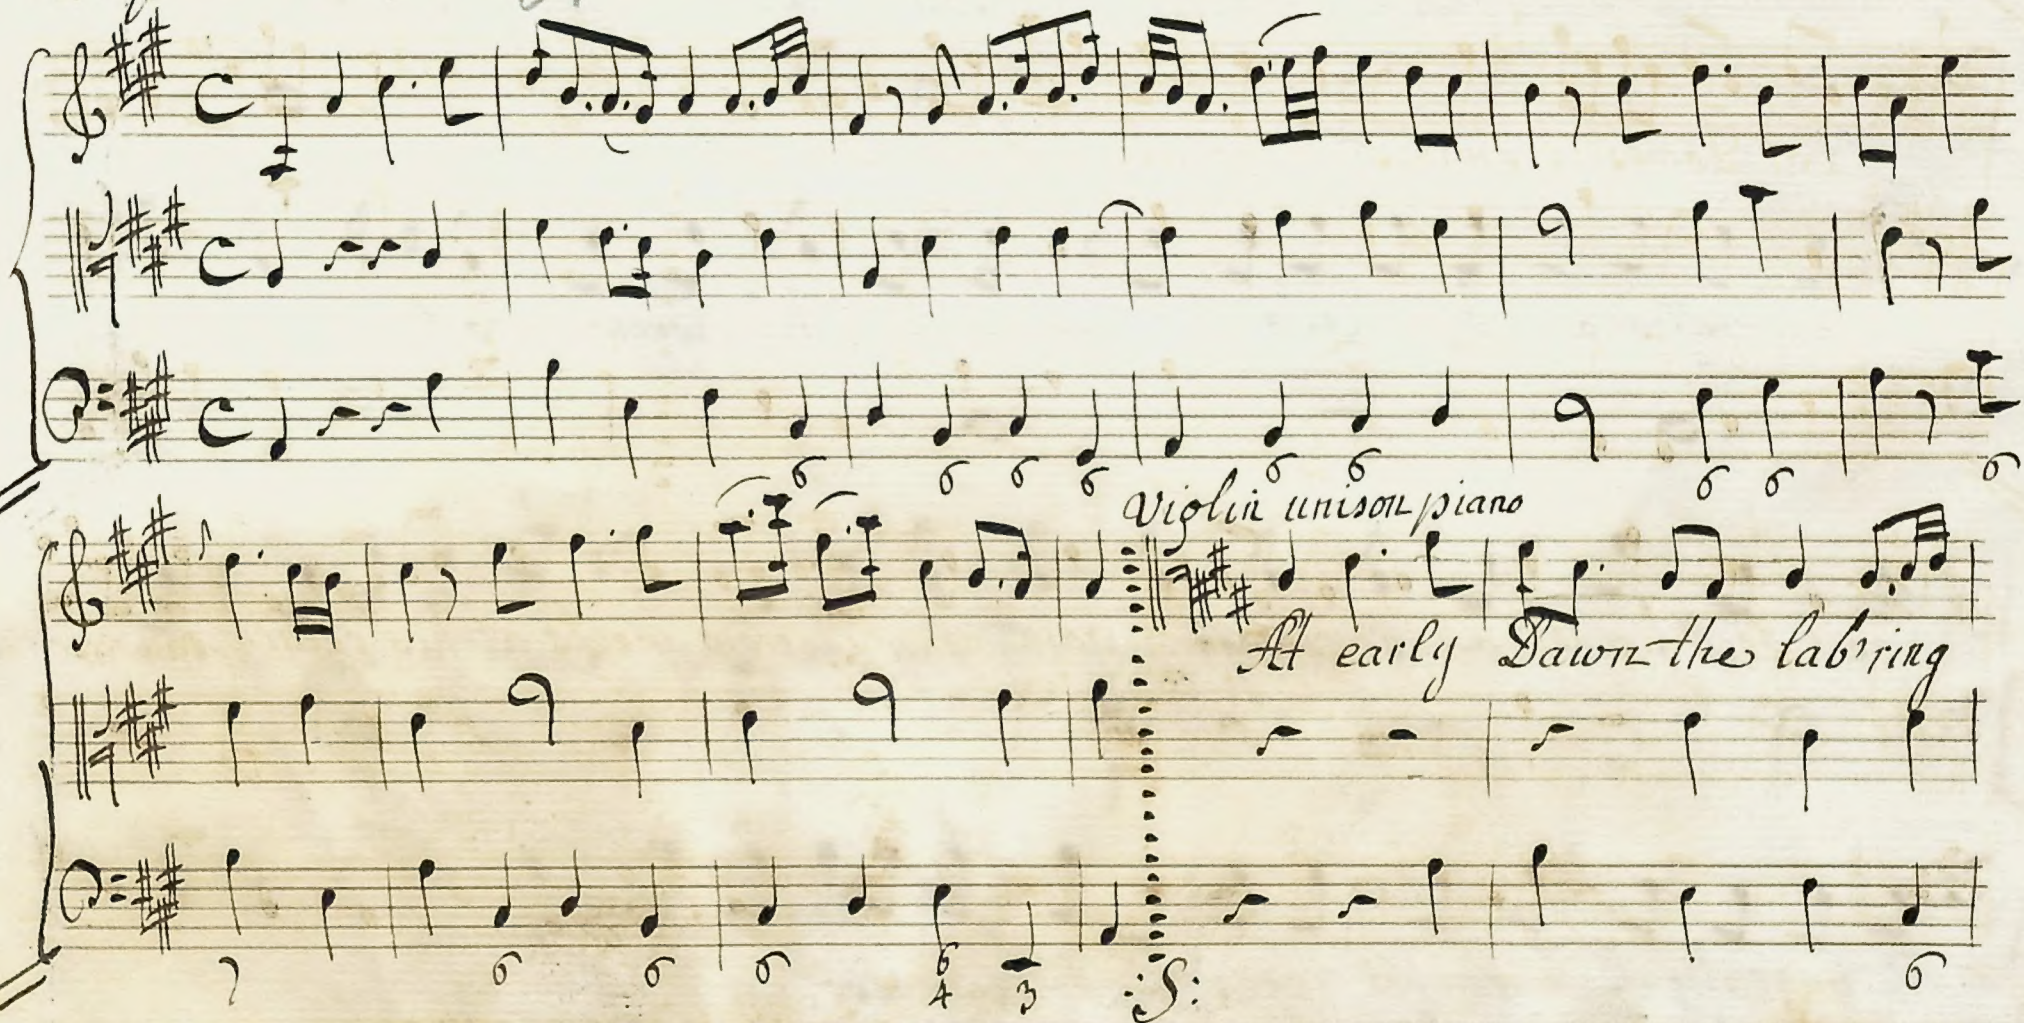 6 6 6 6 6 6 6 6 6
Violin unison piano
At early Dawn the lab'ring
7 6 6 6 6 3 :S: 6
4